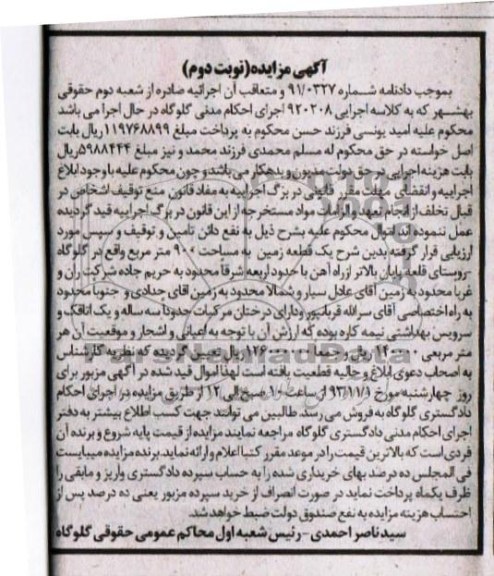 آگهی مزایده(نوبت دوم)
بموجب دادنامه شماره ۹۱/۰۳۲۷ و متعاقب آن اجرائیه صادره از شعبه دوم حقوقی
بهشهر که به کلاسه اجرایی ۹۲۰۲۰۸ اجرای احکام مدنی گلوگاه در حال اجرا می باشد
محکوم علیه امید یونسی فرزند حسن محکوم به پرداخت مبلغ ۱۱۹۷۶۸۸۹۹ریال بابت
اصل خواسته در حق محکوم له مسلم محمدی فرزند محمد و نیز مبلغ ۵۹۸۸۴۴۴ریال
بابت هزینه اجرایی در حق دولت مدیون و بدهکار می باشد و چون محکوم علیه با وجود ابلاغ
اجراییه و انقضای مهلت مقرر قانونی در برگ اجراییه به مفاد قانون منع توقیف اشخاص در
قبال تخلف از انجام تعهد و الزامات مواد مستخرجه از این قانون در برگ اجراییه قید گردیده
عمل ننموده اند اموال محکوم علیه بشرح ذیل به نفع دائن تامین و توقیف و سپس مورد
ارزیابی قرار گرفته بدین شرح یک قطعه زمین به مساحت ۹۰۰ متر مربع واقع در گلوگاه
-روستای قلعه پایان بالاتر از راه آهن با حدود اربعه شرقا محدود به حریم جاده شرکت ران و
غربا محدود به زمین آقای عادل سیار و شمالا محدود به زمین آقای جدادی و جنوبا محدود
به راه اختصاصی آقای سرالله قربانپور و دارای درختان مرکبات حدودا سه ساله و یک اتاقک و
سرویس بهداشتی نیمه کاره بوده که ارزش آن با توجه به اعیانی و اشجار و موقعیت آن هر
متر مربعی ریال و جمعا ریال تعیین گردیده که نظریه کارشناس
به اصحاب دعوی ابلاغ و حالیه قطعیت یافته است لهذا اموال قید شده در آگهی مزبور برای
روز چهارشنبه مورخ ۹۳/۱۱/۱ از ساعت ۱۰ صبح الی ۱۲ از طریق مزایده در اجرای احکام
دادگستری گلوگاه به فروش می رسد. طالبین می توانند جهت کسب اطلاع بیشتر به دفتر
اجرای احکام مدنی دادگستری گلوگاه مراجعه نمایند مزایده از قیمت پایه شروع و برنده آن
فردی است که بالاترین قیمت را در موعد مقرر کتبا اعلام و ارائه نماید. برنده مزایده میبایست
فی المجلس ده درصد بهای خریداری شده را به حساب سپرده دادگستری واریز و مابقی را
ظرف یکماه پرداخت نماید در صورت انصراف از خرید سپرده مزبور یعنی ده درصد پس از
احتساب هزینه مزایده به نفع صندوق دولت ضبط خواهد شد.
سید ناصر احمدی - رئیس شعبه اول محاکم عمومی حقوقی گلوگاه